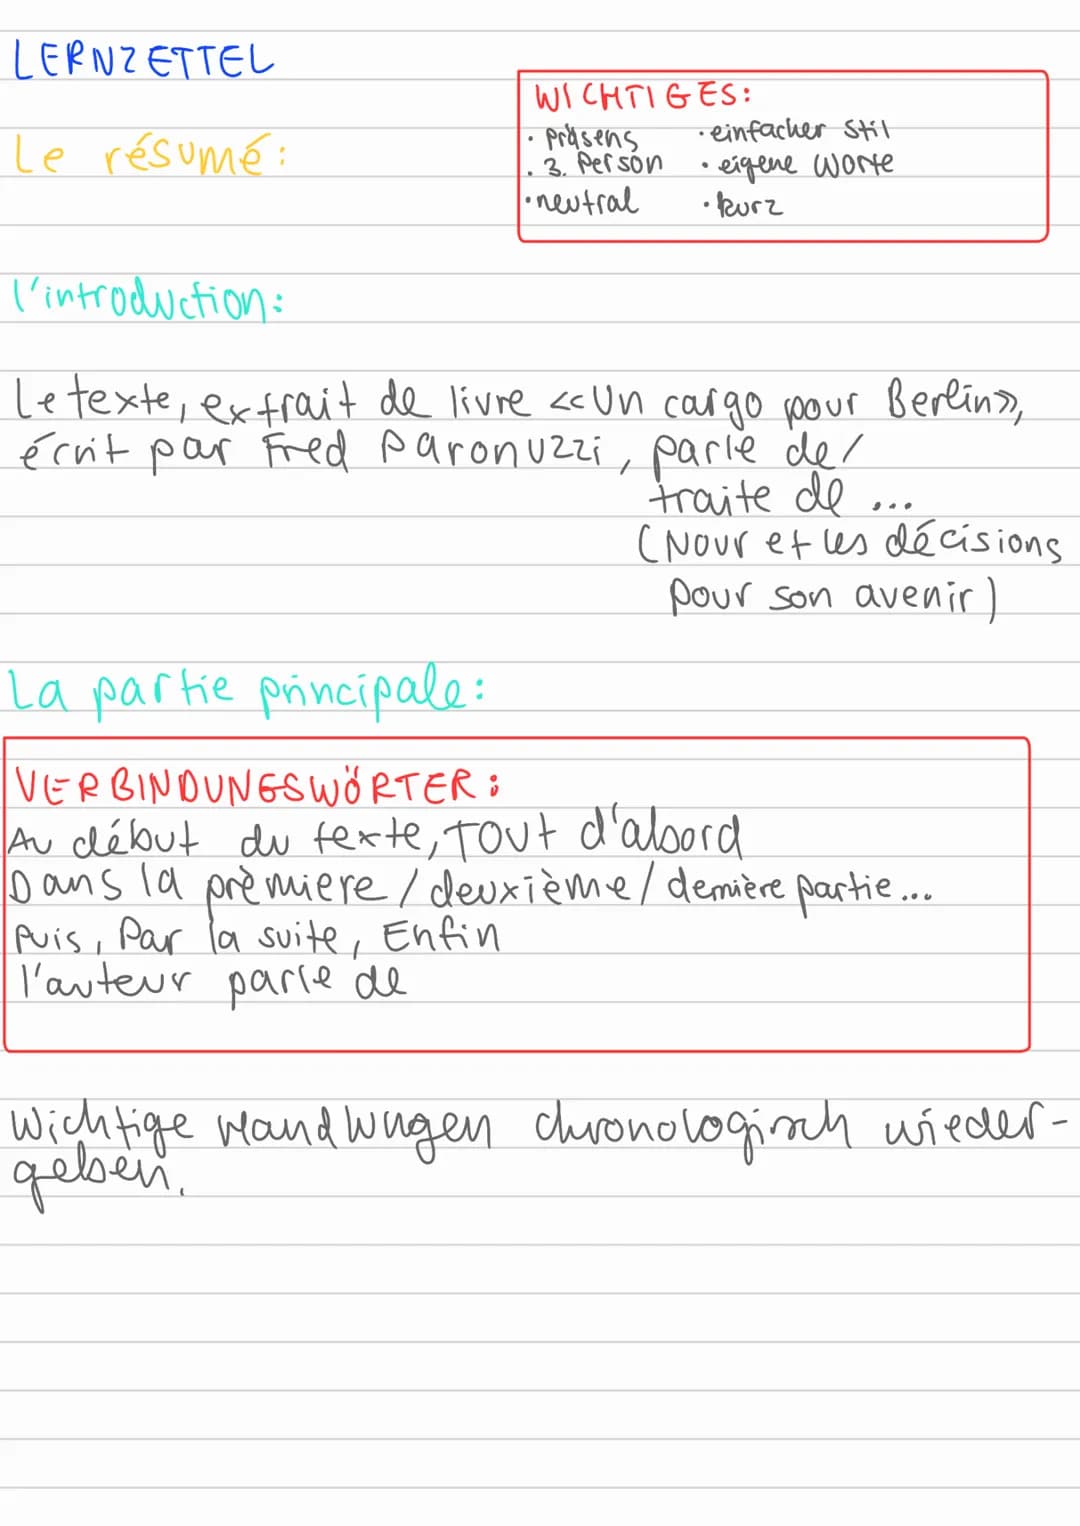 LERNZETTEL
WICHTIGES:
Le résumé:
• Präsens
• einfacher Stil
• 3. Person
• eigene Worte
• neutral
• kurz
l'introduction:
Le texte, extrait de livre <<Un cargo pour Berlin>>,
écrit par Fred Paronuzzi, parle de/
traite de ...
(Nour et les décisions
pour son avenir)
La partie principale:
VERBINDUNGSWÖRTER:
Au début du texte, Tout d'abord
Dans la prèmiere / deuxième / dernière partie ...
Puis, Par la suite, Enfin
l'auteur parle de
Wichtige Handlungen chronologisch wieder-
geben.